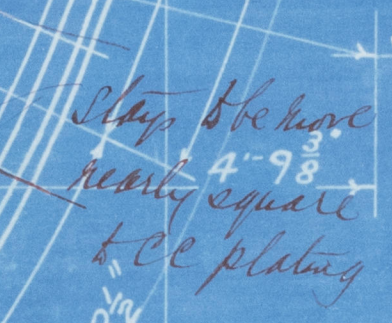 stays to be more
nearly square
to CC plating
4'-9 3/8"
0 1/2"